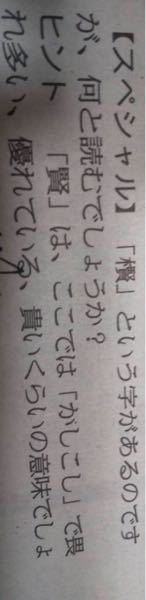 【スペシャル】「」という字があるのです
が、何と読むでしょうか?
ヒント　「賢」は、ここでは「がしこし」で畏
れ多い、優れている、貴いくらいの意味でしょ